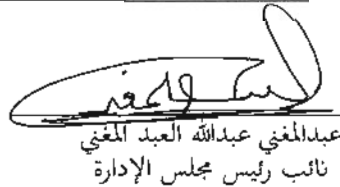 عبدالمغني عبدالله العبد المغني
نائب رئيس مجلس الإدارة